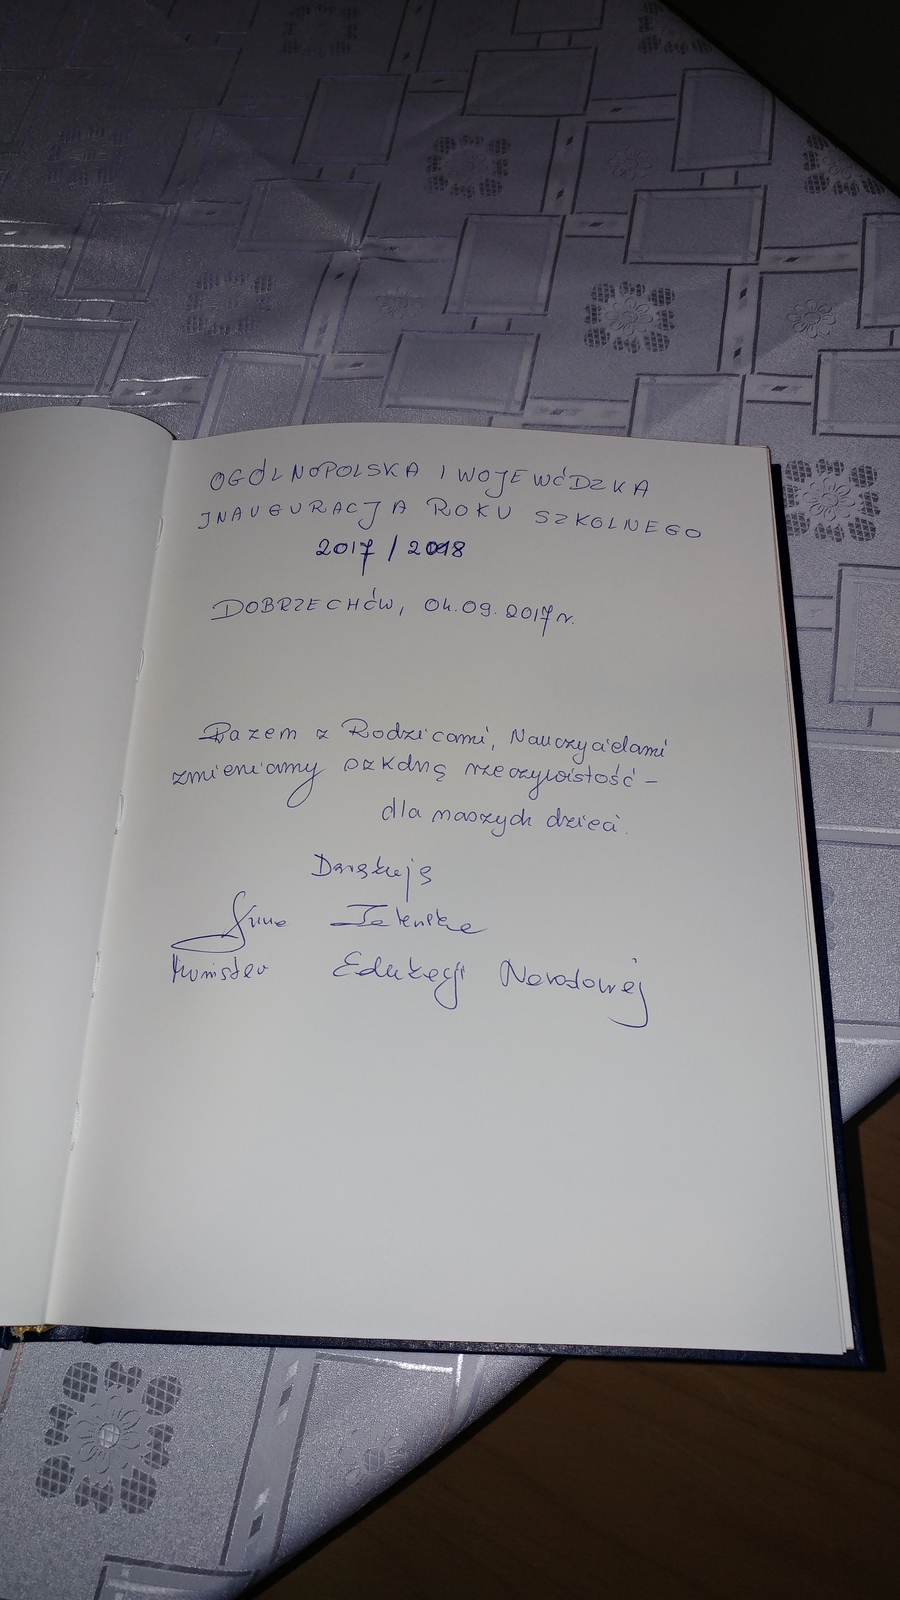 OGÓLNOPOLSKA I WOJEWÓDZKA
INAUGURACJA ROKU SZKOLNEGO
2017 / 2018
DOBRZECHÓW, 04.09.2017 r.
Razem z Rodzicami, Nauczycielami
zmieniamy szkolną rzeczywistość –
dla naszych dzieci.
Dziękuję
Anna Zalewska
Minister Edukacji Narodowej